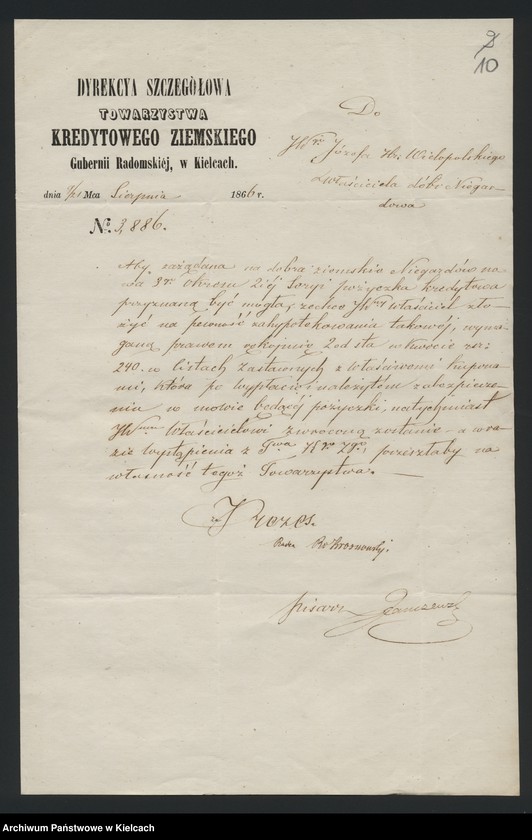 10
DYREKCYA SZCZEGÓŁOWA
TOWARZYSTWA
KREDYTOWEGO ZIEMSKIEGO
Gubernii Radomskiéj, w Kielcach.
dnia 9/21 Mca Sierpnia 1866 r.
№ 3,886.
Do
JWgo Józefa Hr. Wielopolskiego
Właściciela dóbr Niegar-
dowa
Aby zażądana na dobra ziemskie Niegardów na-
wa 3go okresu 2éj Seryi pożyczka kredytowa
przyznaną być mogła, zechce JWny Właściciel zło-
żyć na pewność zahypotekowania takowéj, wyma-
ganą prawem rękojmię 2 od sta w kwocie rs:
240. w listach zastawnych z właściwemi kupona-
mi, która po wypłacie i należytém zabezpiecze-
niu w mowie będącéj pożyczki, natychmiast
JWmu Właścicielowi zwróconą zostanie – a w ra-
zie wystąpienia z Twa Kgo Zgo, przeszłaby na
własność tegoż Towarzystwa. —
za Prezes.
Radca
Pisarz
Archiwum Państwowe w Kielcach